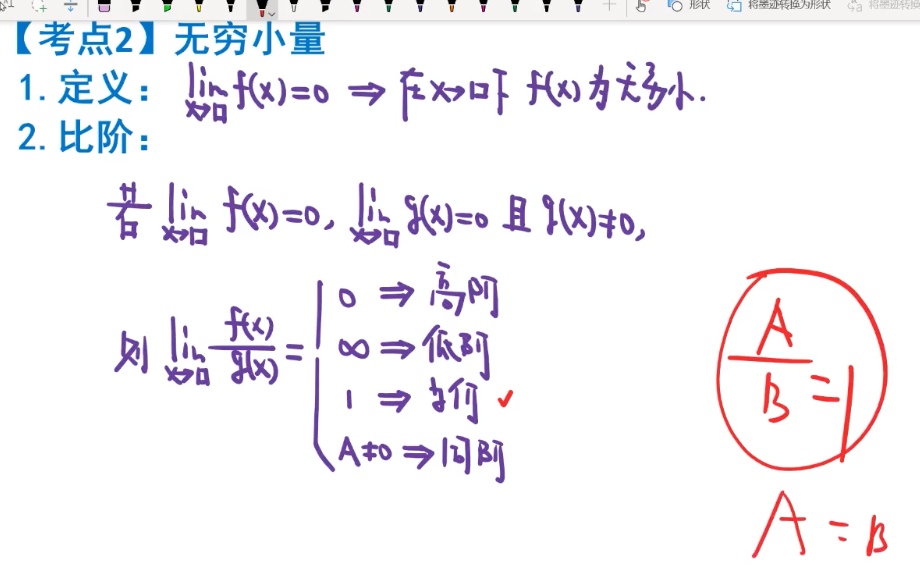 形状 将墨迹转换为形状 将墨迹转换
【考点2】无穷小量
1. 定义： lim x→□ f(x)=0 ⇒ 在x→□下 f(x)为无穷小.
2. 比阶：
若 lim x→□ f(x)=0, lim x→□ g(x)=0 且 g(x)≠0,
则 lim x→□ f(x)/g(x) =
0 ⇒ 高阶
∞ ⇒ 低阶
1 ⇒ 等价 ✓
A≠0 ⇒ 同阶
A/B = 1
A = B